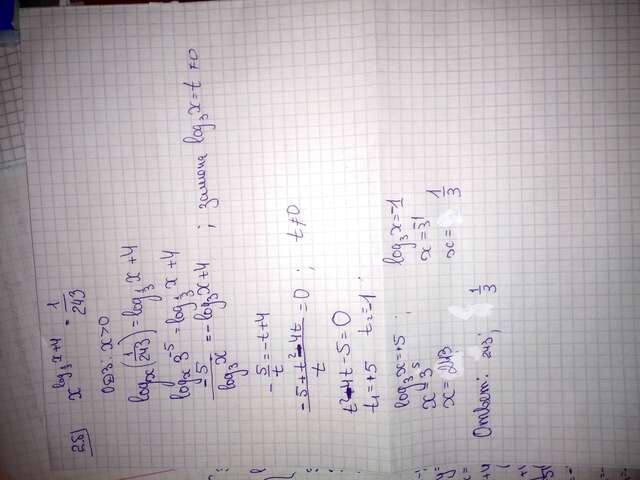 2.8) x^(log_(1/3) x + 4) = 1/243
ОДЗ: x>0
log_x(1/243) = log_(1/3) x + 4
log_x 3^(-5) = log_(1/3) x + 4
-5/(log_3 x) = -log_3 x + 4 ; замена log_3 x = t ≠ 0
-5/t = -t+4
(-5+t²-4t)/t = 0 ; t≠0
t²-4t-5=0
t₁=+5 t₂=-1.
log_3 x = +5 ; log_3 x = -1
x = 3^5 x = 3^(-1)
x = 243; x = 1/3
Ответ: 243; 1/3